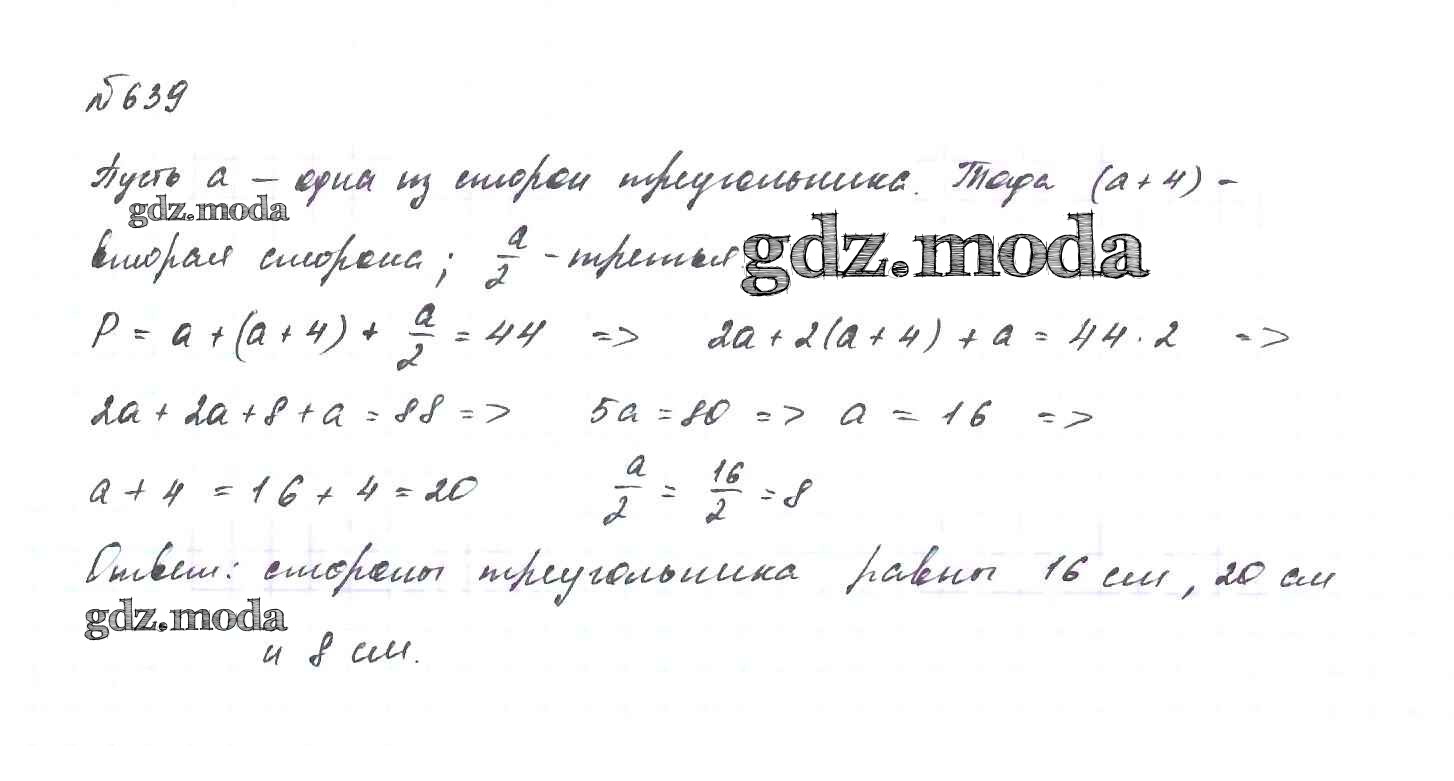 №639
Пусть a – одна из сторон треугольника. Тогда (a+4) –
gdz.moda
вторая сторона; a/2 – третья
gdz.moda
P = a + (a + 4) + a/2 = 44 => 2a + 2(a + 4) + a = 44 · 2 =>
2a + 2a + 8 + a = 88 => 5a = 80 => a = 16 =>
a + 4 = 16 + 4 = 20 a/2 = 16/2 = 8
Ответ: стороны треугольника равны 16 см, 20 см
gdz.moda
и 8 см.